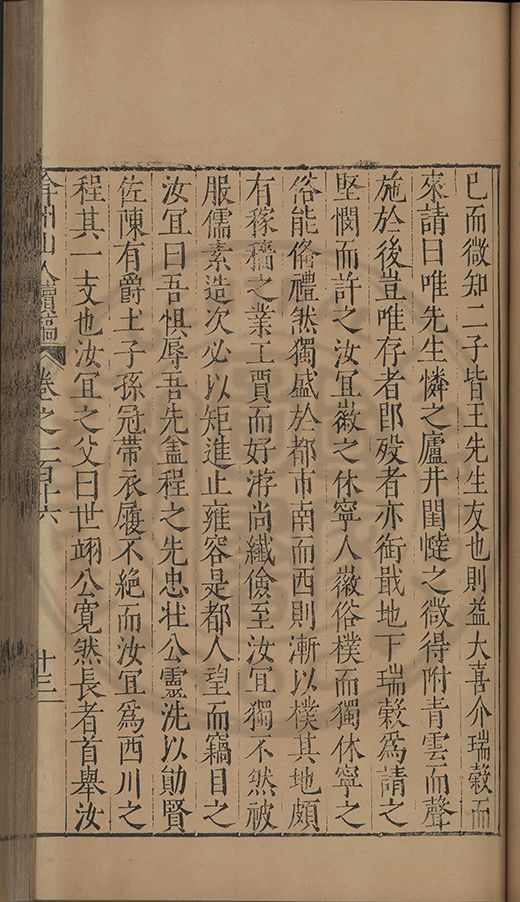 已而微知二子皆王先生友也則益大喜介瑞穀而
來請曰唯先生憐之廬井閨闥之微得附青雲而聲
施於後豈唯存者卽歿者亦銜戢地下瑞穀為請之
堅憫而許之汝宜徽之休寧人徽俗樸而獨休寧之
俗能脩禮然獨盛於都市南而西則漸以樸其地頗
有稼穡之業工賈而好游尚纖儉至汝宜獨不然被
服儒素造次必以矩進止雍容是都人望而竊目之
汝宜曰吾惧辱吾先盖程之先忠壮公靈洗以勛賢
佐陳有爵土子孫冠帶衣履不絕而汝宜爲西川之
程其一支也汝宜之父曰世翊公寛然長者首舉汝
弇州山人續稿 卷之一百十六 十三